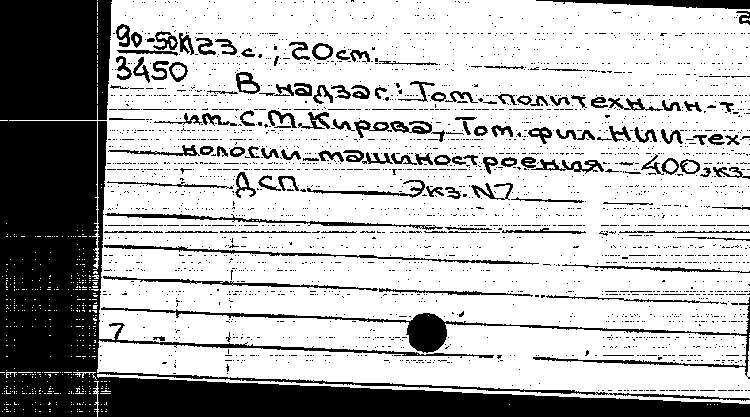 90-50К 123 с. ; 20 cm.
3450
В надзаг.: Том. политехн. ин-т
им. С.М. Кирова, Том. фил. НИИ тех-
нологии машиностроения. - 400 экз.
ДСП. Экз. N7
7